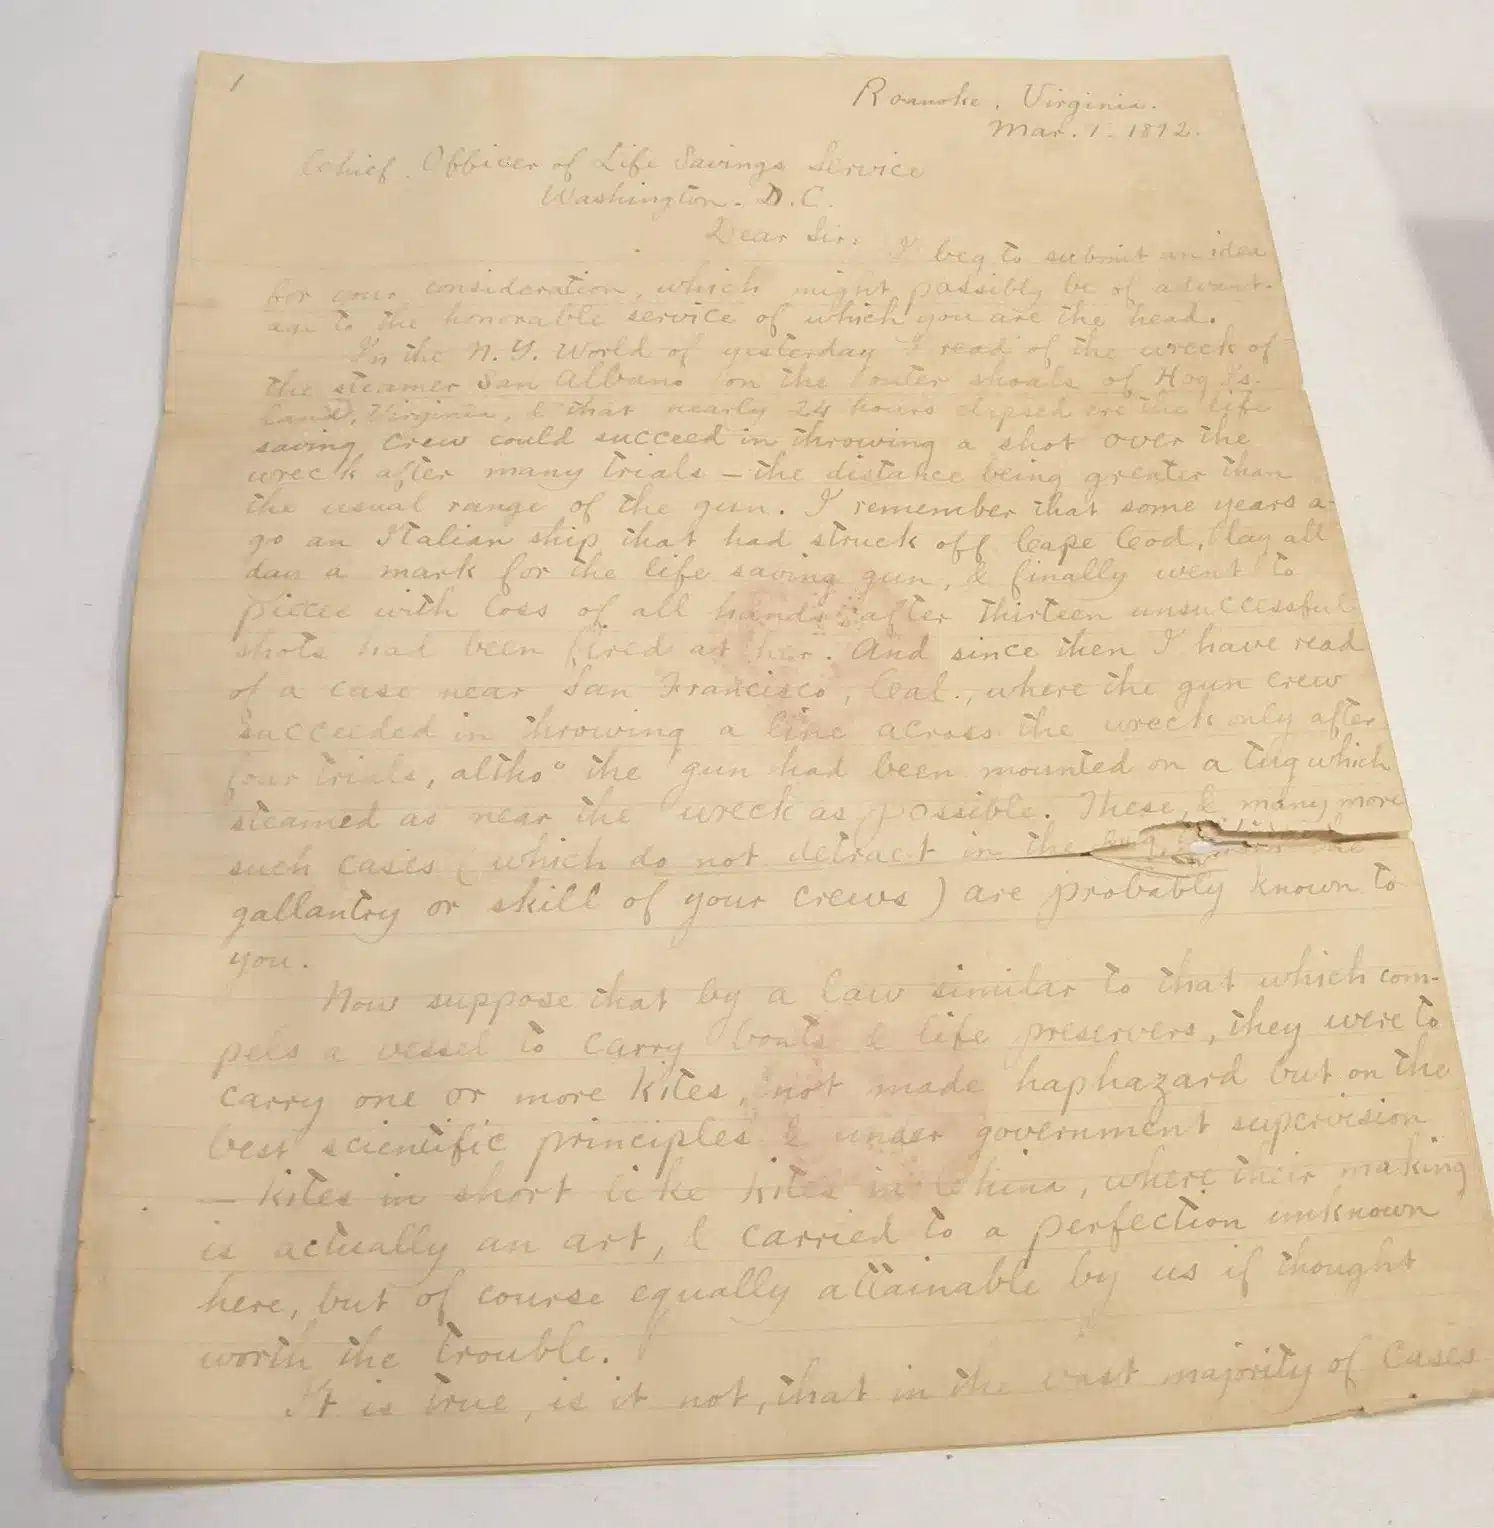 1
Roanoke, Virginia.
Mar. 1. 1892.
Chief Officer of Life Savings Service
Washington. D.C.
Dear Sir:
I beg to submit an idea
for your consideration, which might possibly be of advant-
age to the honorable service of which you are the head.
In the N.Y. World of yesterday I read of the wreck of
the steamer San Albano on the outer shoals of Hog Is-
land, Virginia, & that nearly 24 hours elapsed ere the life
saving crew could succeed in throwing a shot over the
wreck after many trials — the distance being greater than
the usual range of the gun. I remember that some years a-
go an Italian ship that had struck off Cape Cod, lay all
day a mark for the life saving gun, & finally went to
pieces with loss of all hands after thirteen unsuccessful
shots had been fired at her. And since then I have read
of a case near San Francisco, Cal., where the gun crew
succeeded in throwing a line across the wreck only after
four trials, altho' the gun had been mounted on a tug which
steamed as near the wreck as possible. These, & many more
such cases (which do not detract in the the
gallantry or skill of your crews) are probably known to
you.
Now suppose that by a law similar to that which com-
pels a vessel to carry boats & life preservers, they were to
carry one or more kites, not made haphazard but on the
best scientific principles & under government supervision
— kites in short like kites in China, where their making
is actually an art, & carried to a perfection unknown
here, but of course equally attainable by us if thought
worth the trouble.
It is true, is it not, that in the vast majority of cases